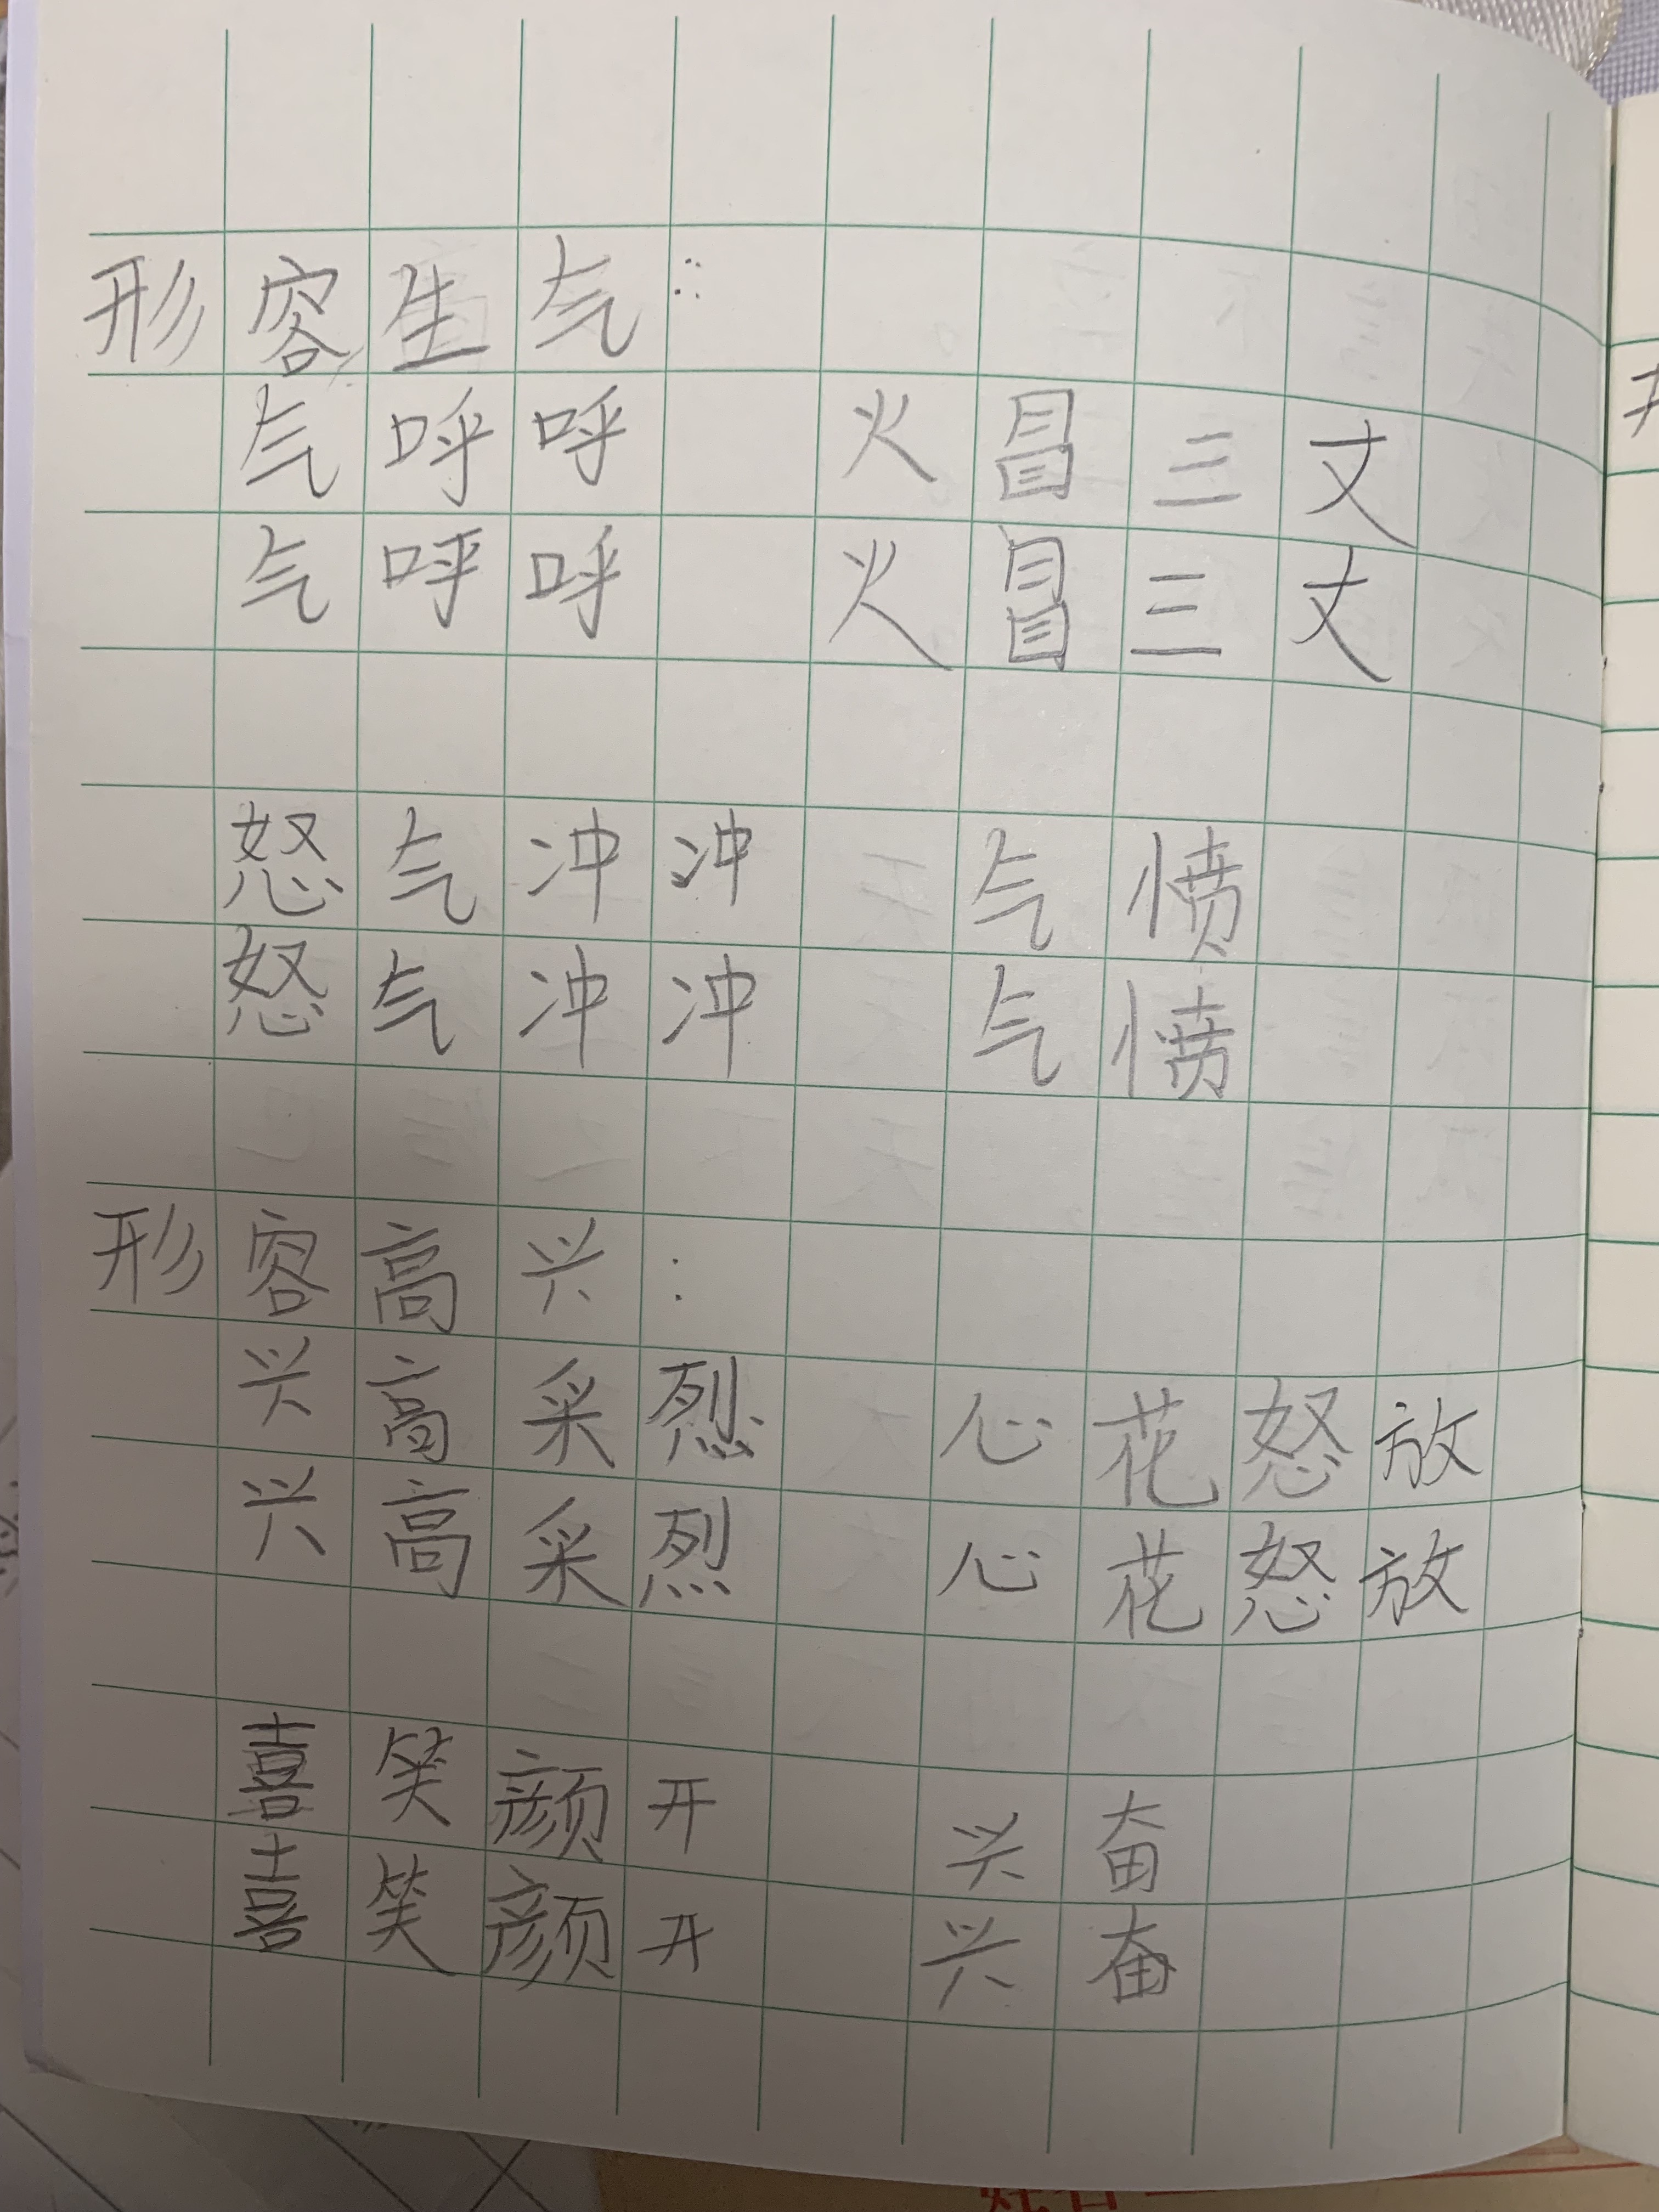 形容生气：
气呼呼 火冒三丈
气呼呼 火冒三丈
怒气冲冲 气愤
怒气冲冲 气愤
形容高兴：
兴高采烈 心花怒放
兴高采烈 心花怒放
喜笑颜开 兴奋
喜笑颜开 兴奋